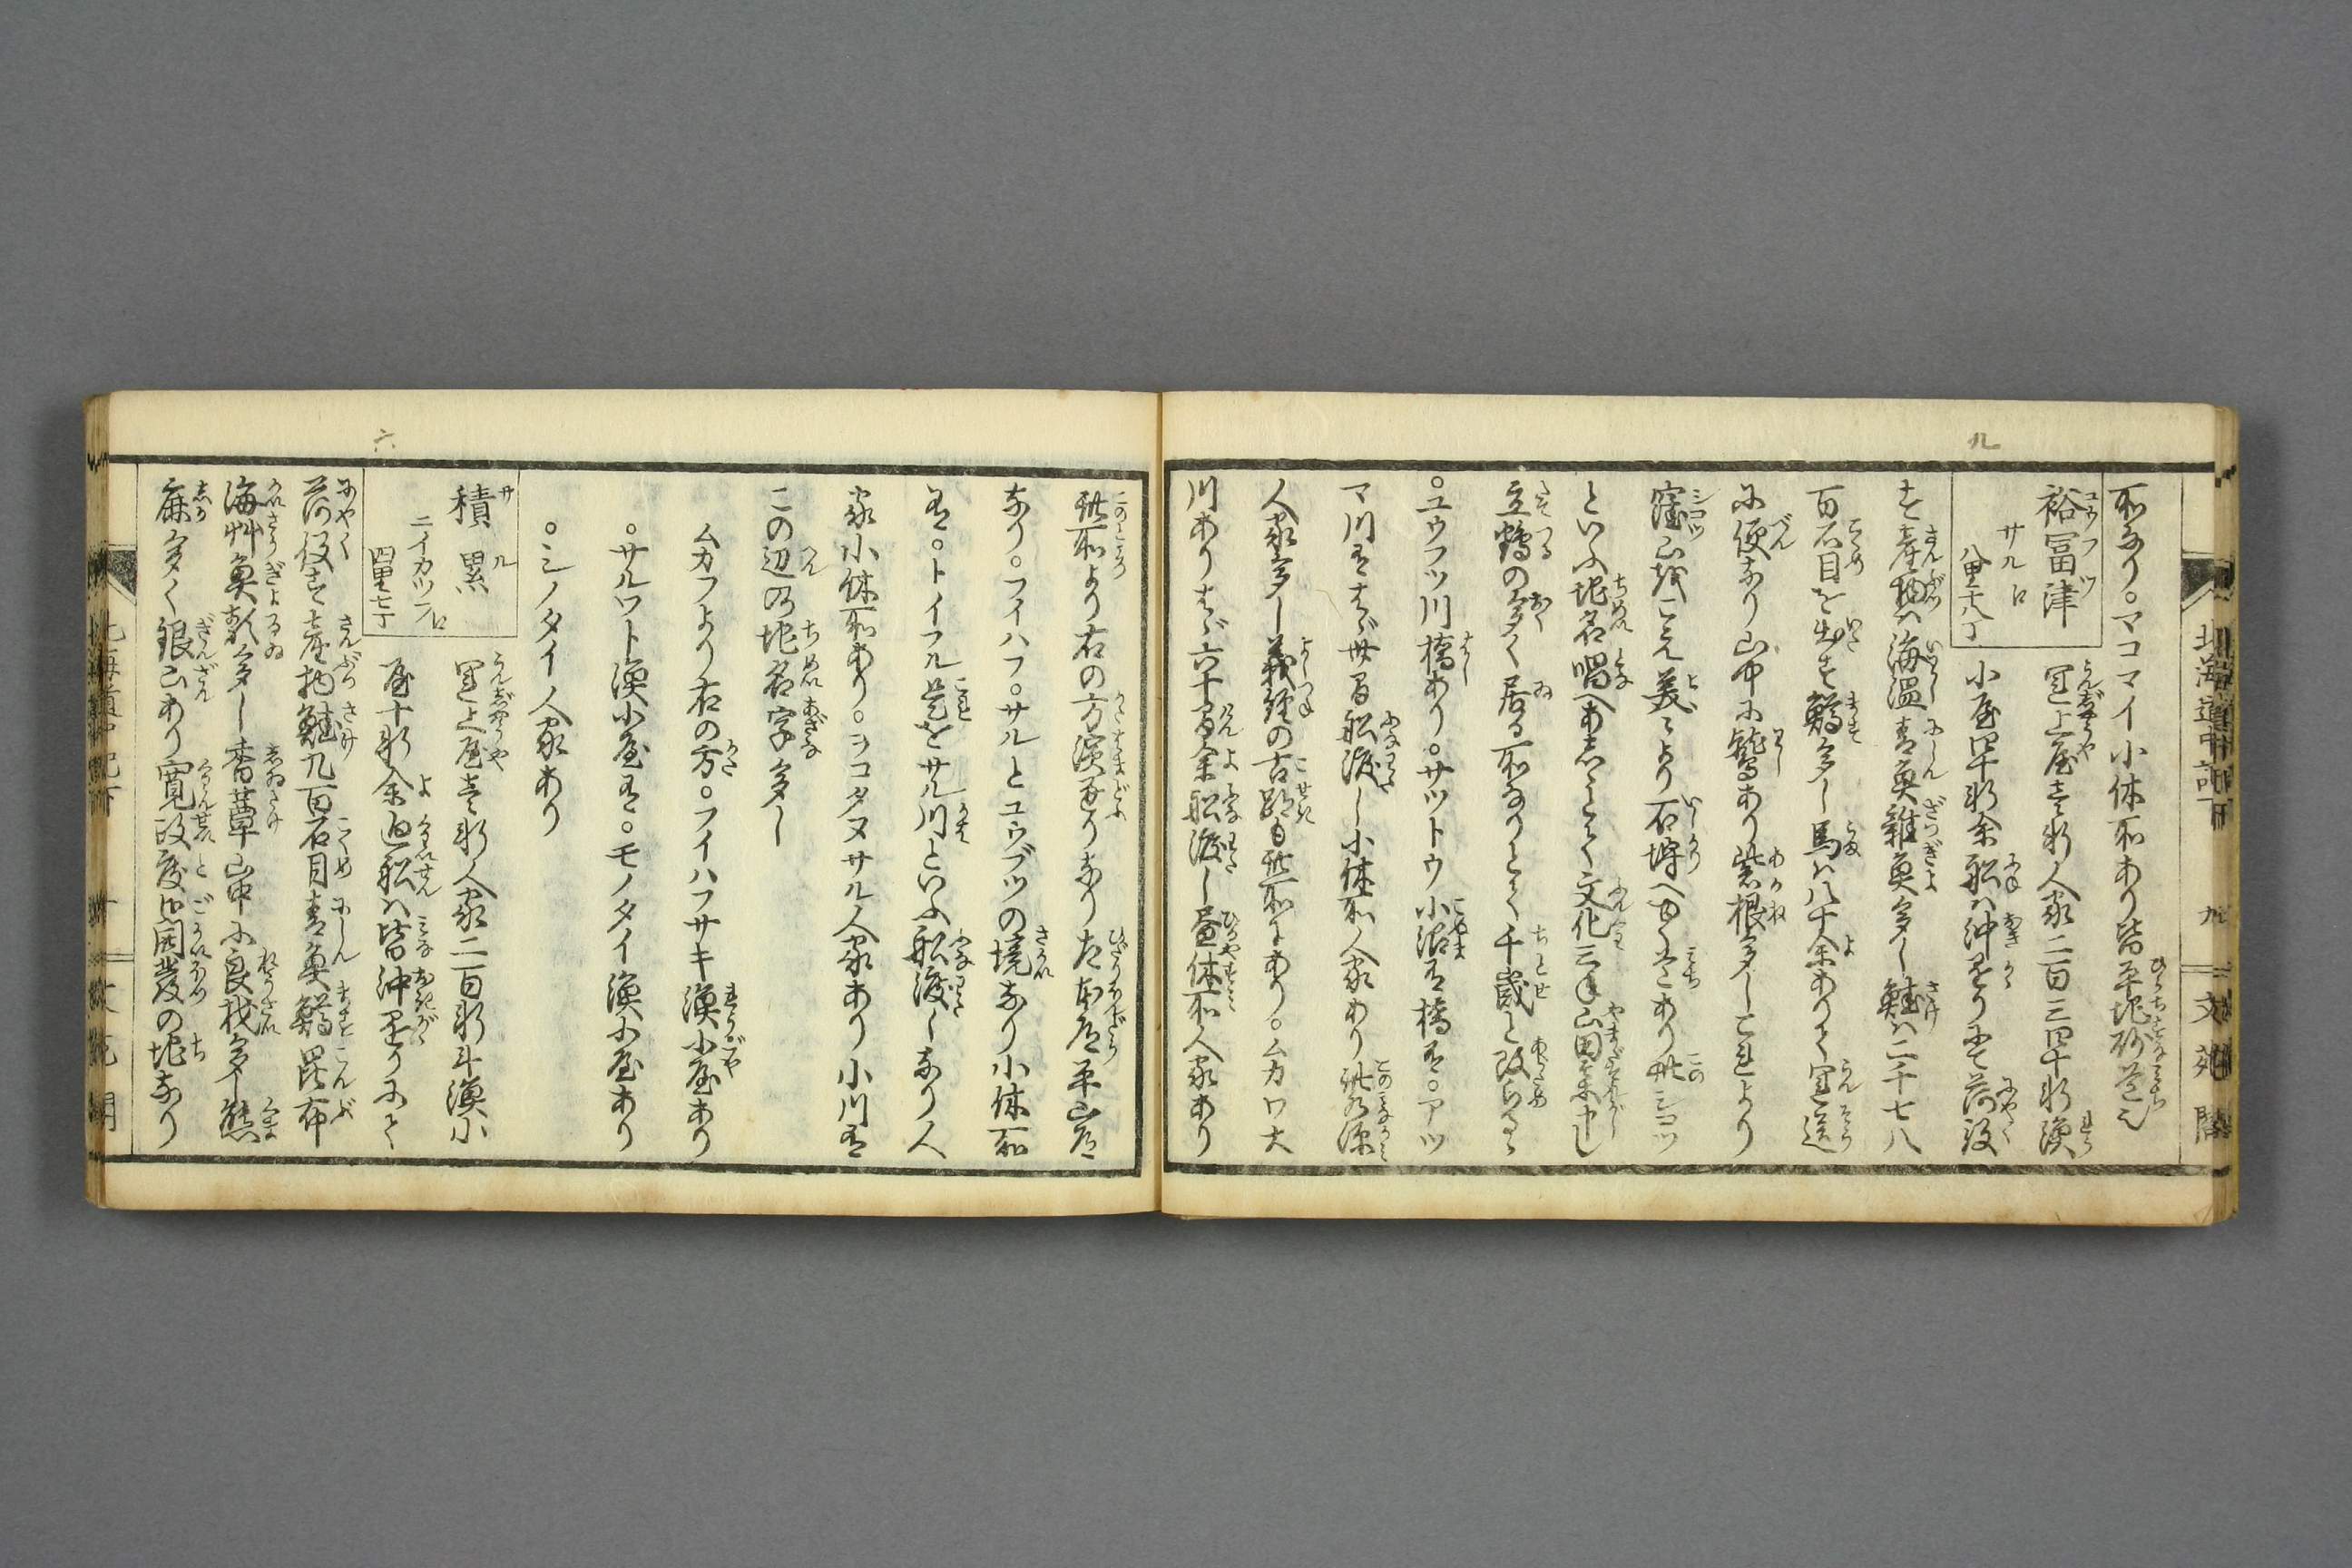 所なり。マコマイ小休所あり皆平地砂道也
裕冨津 運上屋壱軒人家二百三四十軒漁
サルヘ 八里六丁 小屋四十軒余船ハ沖懸りにて荷役
す産物ハ海温青魚雑魚多し鮭ハ二千七八
百石目を出す鱒多し馬ハ八十余ありて運送
に便なり山中に鷲あり紫根多しこれより
シコツ山越こえ美々より石狩へ出る道あり此シコツ
といふ地名唱へあしとて文化三年山田某申し
立鶴の多く居る所なりとて千歳と改らるゝ
。ユウフツ川橋あり。サツトウ小沼有橋有。アツ
マ川有はゞ廿間船渡し小休所人家あり此水源
人家多し義経の古跡も此所にあり。ムカワ大
川ありはゞ六十間余船渡し昼休所人家あり
此所より右の方濱通りなり左本道平山道
なり。フイハフ。サルとユウブツの境なり小休所
有。トイフル是をサル川といふ船渡しなり人
家小休所あり。シコタヌサル人家あり小川有
この辺の地名字多し
ムカフより右の方。フイハフサキ漁小屋あり
。サルフト漁小屋有。モノタイ漁小屋あり
。シノタイ人家あり
積累 運上屋壱軒人家二百軒斗漁小
ニイカツフヘ 四里七丁 屋十軒余廻船ハ皆沖懸りにて
荷役す産物鮭九百石目青魚鱒昆布
海艸魚類多し香蕈山中に良材多し熊
麻多く銀山あり寛政度御開発の地なり
北海道中記下 九 文苑閣